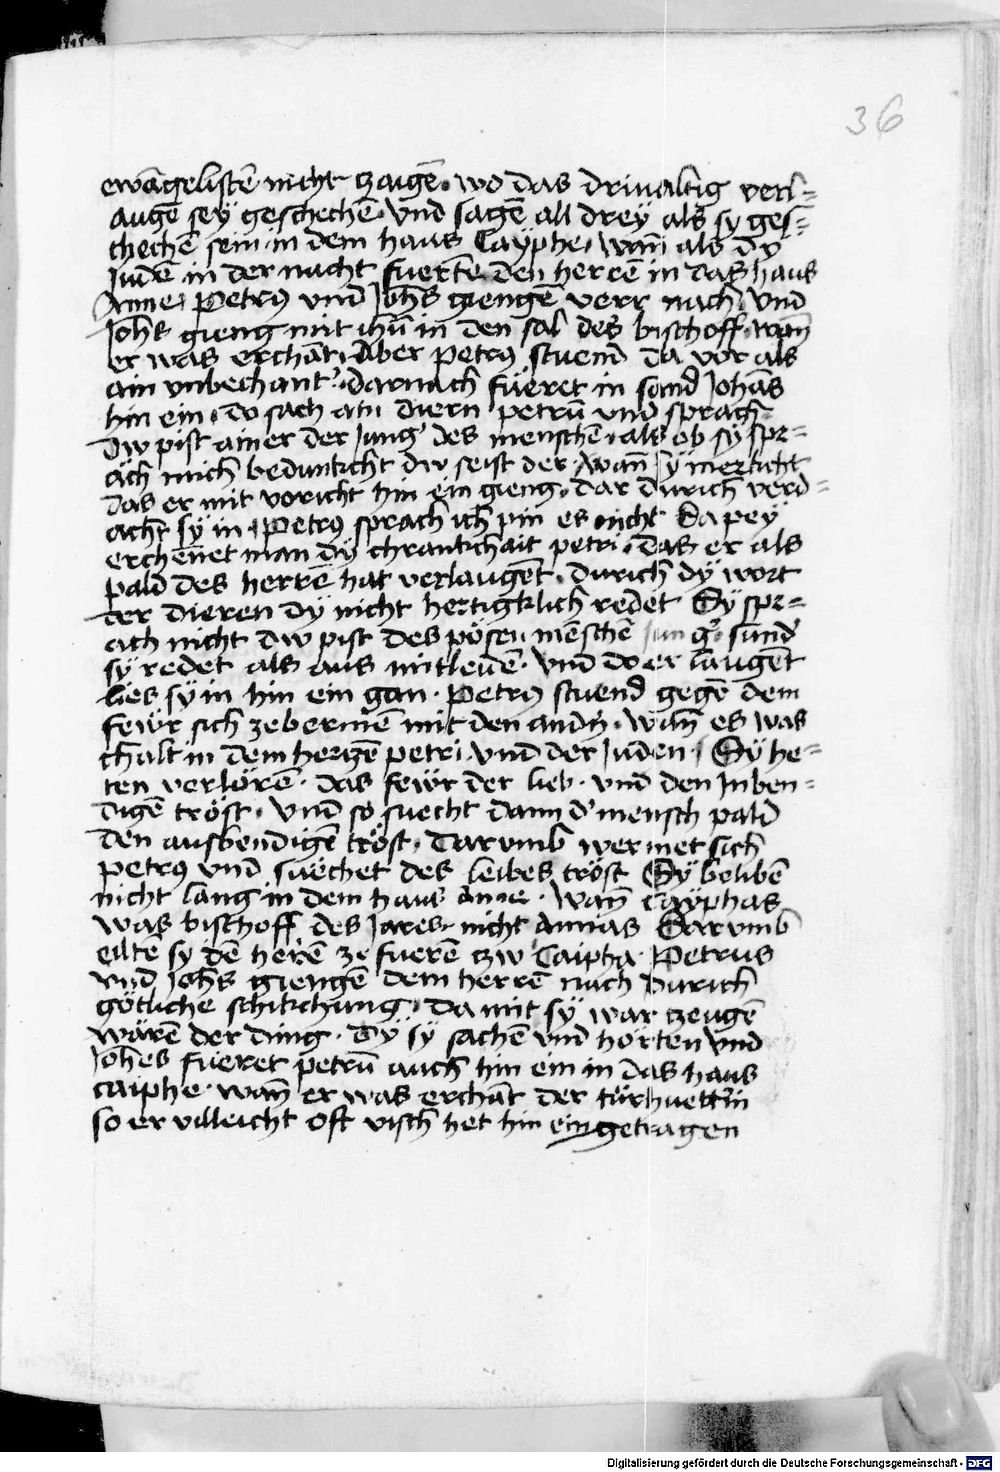 36
ewāgelistē nicht tzaigē · wo das drivaltig verl=
augē seÿ geschechē · vnd sagē all dreÿ als sy ges=
chechē sein · in dem haus Caÿphe · wañ als dÿ
Judē in der nacht fuertē den herrē in das haus
Anne · Petrꝰ vnd Joh̄s giengē verr nach · vnd
Joh̄s gieng mit ihū in den sal des bischoff · wañ
er was erchāt · Aber petrꝰ stuend da vor als
ain vnbechant̓ · darnach füeret in sand Johās
hin ein · do sach ain diern petrū vnd sprach ·
dw pist ainer der Jung̓ des menschē · als ob sÿ spr=
äch mich bedunkcht dw seist der · wañ sÿ merkcht
das er mit voricht hin ein gieng · dar durich verd=
acht sÿ in · Petrꝰ sprach ich pin es nicht Da peÿ
erchēnet man dÿ chrankchait petri · das er als
pald des herrē hat verlaugēt · durich dÿ wort
der dieren dÿ nicht hertigklich redet Sÿ spr=
ach nicht dw pist des pösen mēschē jung̓ · sund̓
sÿ redet als aus mitleidē · vnd do er laugēt
lies sÿ in hin ein gan · Petrꝰ stuend gegē dem
fewr sich ze bermē mit den andn̄ · wañ es was
chalt in dem hertzē petri · vnd der Juden · Sÿ he=
ten verlörē · das fewr der lieb · vnd den Inben=
digē tröst · vnd so suecht dann d̓ mensch pald
den ausbendigē tröst · darumb wermet sich
petrꝰ vnd suechet des leibes tröst Sÿ belibē
nicht lang in dem haus anne · wañ caÿphas
was bischoff des Jares · nicht Annas Darumb
eiltē sy dē herē ze fuerē zw Caipha · Petrus
vnd Joh̄s giengē dem herrē nach durich
götliche schikchung · da mit sÿ war tzeugē
wärē der ding · Dÿ sÿ sachē vnd hörten vnd
Joh̄es füeret petrū auch hin ein in das haus
caiphe · wañ er was erchāt der türhuetterin
so er villeicht oft visch het hin eingetragen
Digitalisierung gefördert durch die Deutsche Forschungsgemeinschaft - DFG